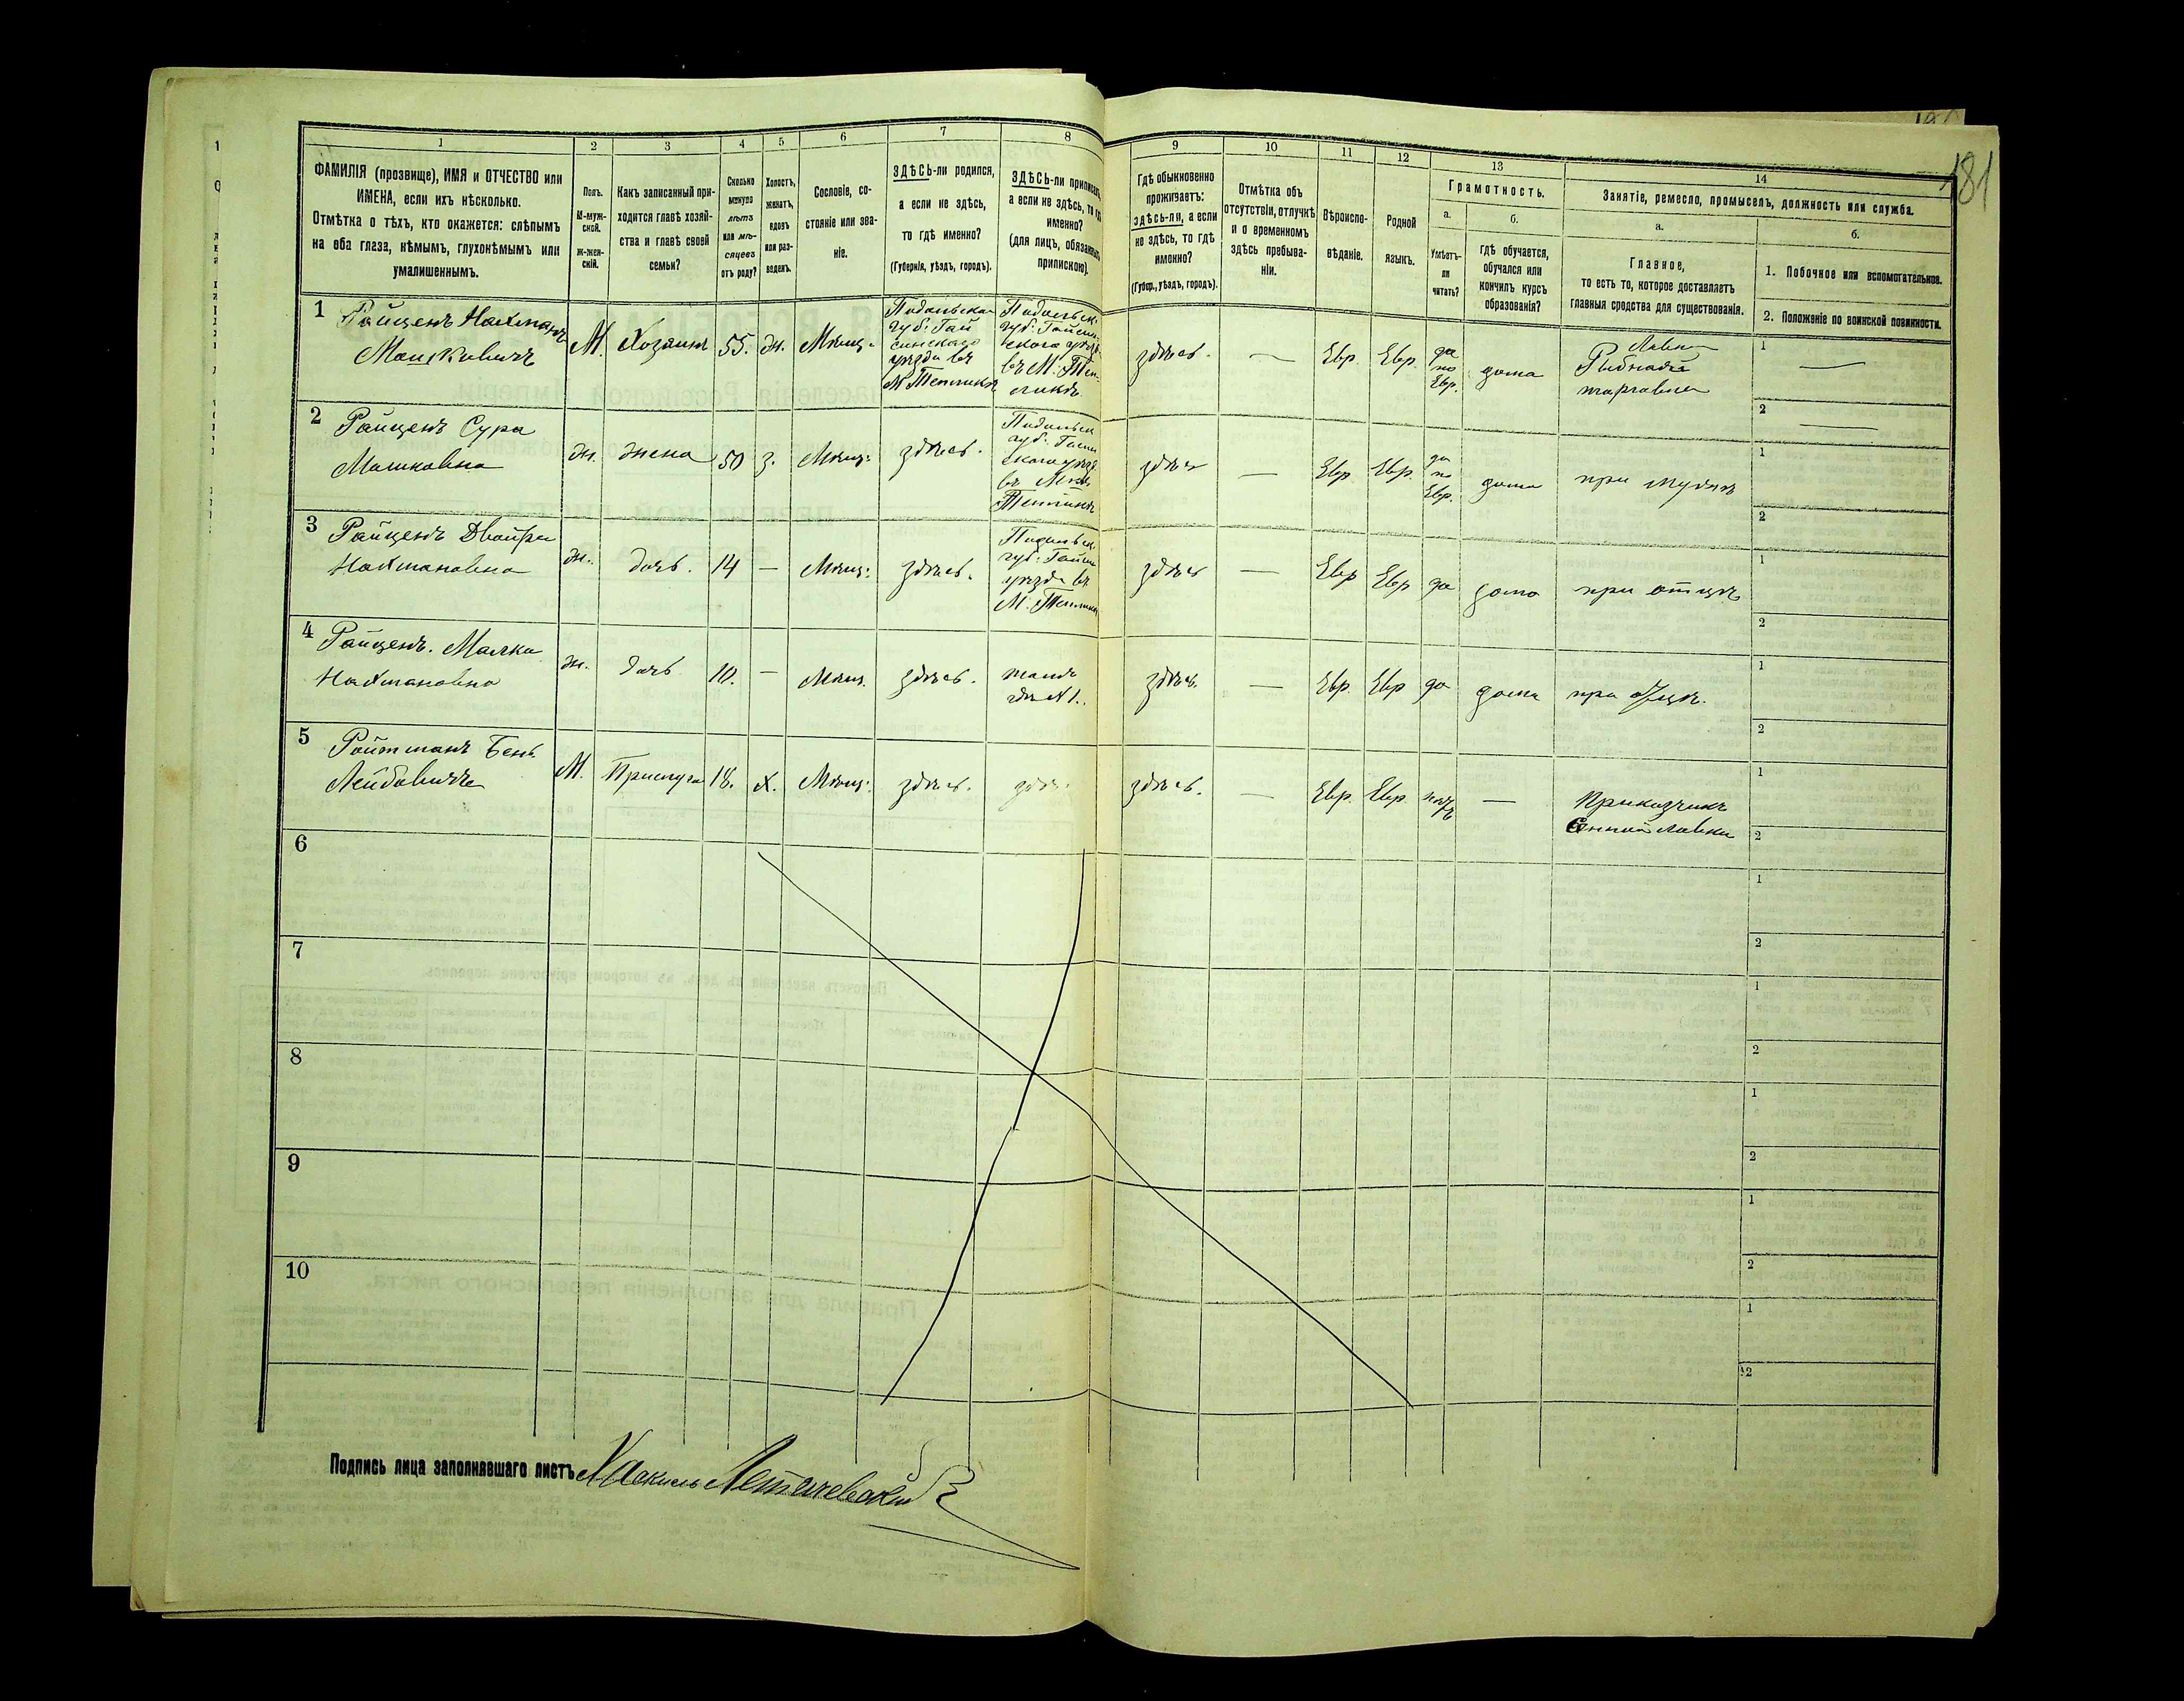 181
1 2 3 4 5 6 7 8 9 10 11 12 13 14
ФАМИЛІЯ (прозвище), ИМЯ и ОТЧЕСТВО или
ИМЕНА, если ихъ нѣсколько.
Отмѣтка о тѣхъ, кто окажется: слѣпымъ
на оба глаза, нѣмымъ, глухонѣмымъ или
умалишеннымъ.
Полъ.
М-муж-
ской.
Ж-жен-
скій.
Какъ записанный при-
ходится главѣ хозяй-
ства и главѣ своей
семьи?
Сколько
минуло
лѣтъ
или мѣ-
сяцевъ
отъ роду?
Холостъ,
женатъ,
вдовъ
или раз-
веденъ.
Сословіе, со-
стояніе или зва-
ніе.
ЗДѢСЬ-ли родился,
а если не здѣсь,
то гдѣ именно?
(Губернія, уѣздъ, городъ).
ЗДѢСЬ-ли приписанъ,
а если не здѣсь, то гдѣ
именно?
(для лицъ, обязанныхъ
припискою).
Гдѣ обыкновенно
проживаетъ:
здѣсь-ли, а если
не здѣсь, то гдѣ
именно?
(Губер., уѣздъ, городъ).
Отмѣтка объ
отсутствіи, отлучкѣ
и о временномъ
здѣсь пребыва-
ніи.
Вѣроиспо-
вѣданіе.
Родной
языкъ.
Грамотность.
а.
Умѣетъ-
ли
читать?
б.
Гдѣ обучается,
обучался или
кончилъ курсъ
образованія?
Занятіе, ремесло, промыселъ, должность или служба.
а.
Главное,
то есть то, которое доставляетъ
главныя средства для существованія.
б.
1. Побочное или вспомогательное.
2. Положеніе по воинской повинности.
1
Райценъ Нахманъ
Мошковичъ
М.
Хозяинъ
55.
Ж.
Мѣщ.
Подольская
губ: Гай
синскаго
уѣзда въ
М Тепликѣ
Подольск.
губ: Гайсин
скаго уѣзд
въ М: Теп
ликѣ
здѣсь.
—
Евр.
Евр.
да
по
Евр.
дома
Лавка
Рыбная
торговля
1 —
2 —
2
Райценъ Сура
Мошковна
Ж.
жена
50
з.
Мѣщ:
здѣсь.
Подольск
губ: Гайсин
скаго уѣзд
въ М
Тепликѣ
здѣсь
—
Евр
Евр.
да
по
Евр.
дома
при мужѣ
1
2
3
Райценъ Двойра
Нахмановна
Ж.
дочь.
14
—
Мѣщ:
здѣсь.
Подольск
губ: Гайсин
уѣзда въ
М: Тепликѣ
здѣсь
—
Евр
Евр
да
дома
при отцѣ
1
2
4
Райценъ. Малка
Нахмановна
Ж.
дочь
10.
—
Мѣщ.
здѣсь.
тамъ
гдѣ N 1.
здѣсь.
—
Евр.
Евр
да
дома
при отцѣ.
1
2
5
Ройтманъ Бень
Лейбовичъ
М.
Прислуга
18.
х.
Мѣщ:
здѣсь.
здѣсь.
здѣсь.
—
Евр.
Евр.
нѣтъ
—
Приказчикъ
лавки
1
2
6
1
2
7
1
2
8
1
2
9
1
2
10
1
2
Подпись лица заполнявшаго листъ Летичевскій